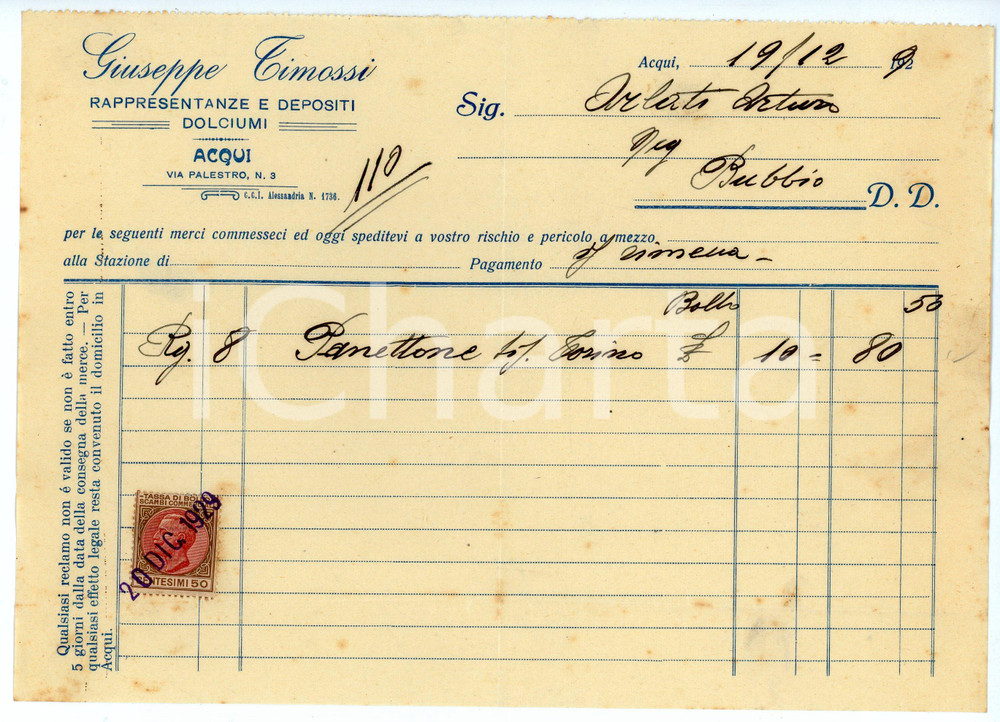 Giuseppe Timossi
RAPPRESENTANZE E DEPOSITI
DOLCIUMI
ACQUI
VIA PALESTRO, N. 3
C.C.I. Alessandria N. 1736.
110
Acqui, 19/12 1929
Sig.
Neg
Bubbio D. D.
per le seguenti merci commesseci ed oggi speditevi a vostro rischio e pericolo a mezzo
alla Stazione di Pagamento s/ rimessa -
Bollo 50
Kg. 8 Panettone Torino £ 10 = 80
iCharta
TASSA DI BO
SCAMBI COMME
20 DIC. 1929
NTESIMI 50
Qualsiasi reclamo non é valido se non è fatto entro
5 giorni dalla data della consegna della merce. — Per
qualsiasi effetto legale resta convenuto il domicilio in
Acqui.